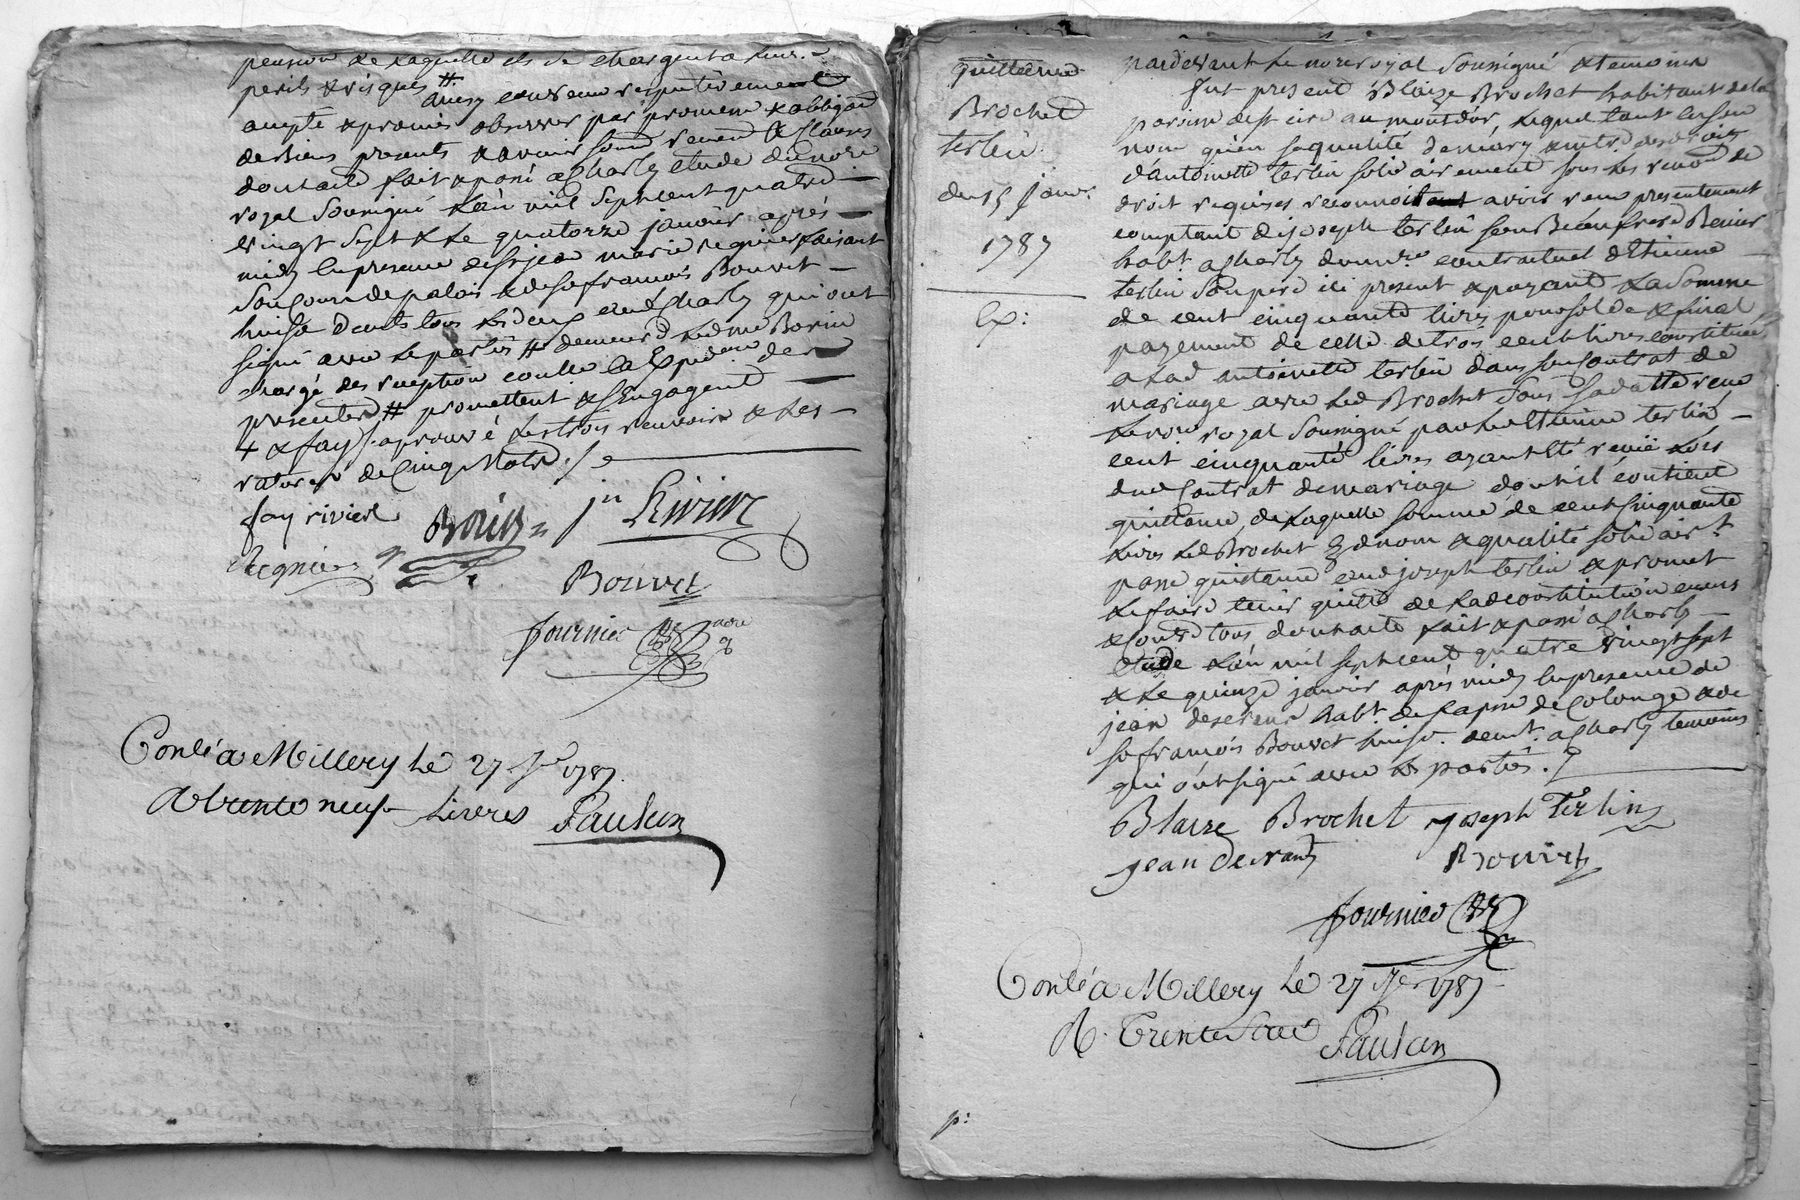 pension de laquelle ils se chargent a leurs
perils & risques #
accepté & promis observer par promesse & obligaõn
de biens presents & avenir soumõn renonõn & clauses
dont acte fait & passé a Charly etude du nore
royal soussigné L'an mil sept cent quatre
vingt sept & Le quatorze janvier aprés
midy En presence de Sr jean marie regnier faisant
Son Cours de palais & de So françois Bouvet
huiss demts tous Les deux aud Charly qui ont
signé avec Les parties # demeure Led me Borin
chargé des
presentes # promettent & s'Engagent
4 & fay aprouvé Les trois renvoirs & Les
ratures de Cinq Mots ./.
fay riviere Borin jn Rivier
Regnier
Bouvet
fournier nore
Conlé a Millery Le 27 Jer 1787
R trente neuf Livres Paulan
quittance
Brochet
terlin
du 15 janvr
1787
Ex:
pardevant Le nore royal Soussigné & temoins
fut present Blaize Brochet habitant de la
paroisse de st cire au montdor, Lequel tant en son
nom qu'en sa qualité de mary & mtre des droits
d'antoinette terlin solidairement sous Les renõns de
droit requises reconnoit avoir reçu presentement
comptant de joseph terlin son Beaufrere
habt a Charly donnre contractuel d'Etienne
terlin Son pere ici present & payant La somme
de cent cinquante livres pour solde & final
payement de celle de trois cent livres constituée
a Lad antoinette terlin dans son Contrat de
mariage avec Led Brochet sous sa datte reçu
Le nore royal Soussigné par Led Etienne terlin
cent cinquante livres ayant eté reçüe Lors
dud Contrat de mariage dont il contient
quittance, de Laquelle somme de cent Cinquante
Livres Led Brochet Esd nom & qualité solidairt
passe quittance aud joseph terlin & promet
Le faire tenir quitte de Lad constitution envers
& Contre tous dont acte fait & passé a Charly
Etude L'an mil sept cent quatre vingt sept
& Le quinze janvier aprés midy En presence de
jean habt de La psse de Colonge & de
So françois Bouvet huiss. demt. a Charly temoins
qui ont signé avec Les parties.
Blaize Brochet Joseph Terlin
jean Bouvet
fournier
Conlé a Millery Le 27 Jer 1787
R. Trente Sous Paulan
p: